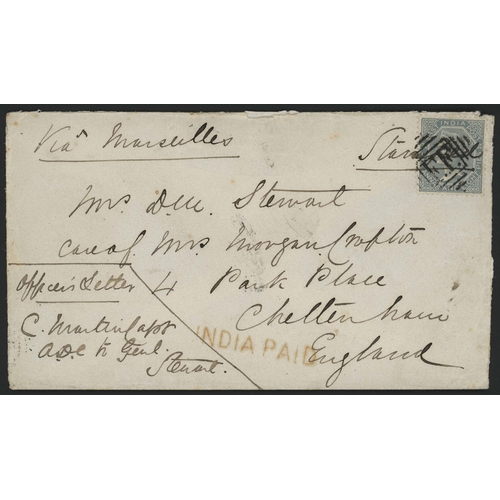 Via Marseilles
INDIA
Mrs D.M. Stewart
care of Mrs Morgan Crofton
4 Park Place
Cheltenham
England
Officer's Letter
C. Martin Capt
ADC to Genl.
Stewart.
INDIA PAID